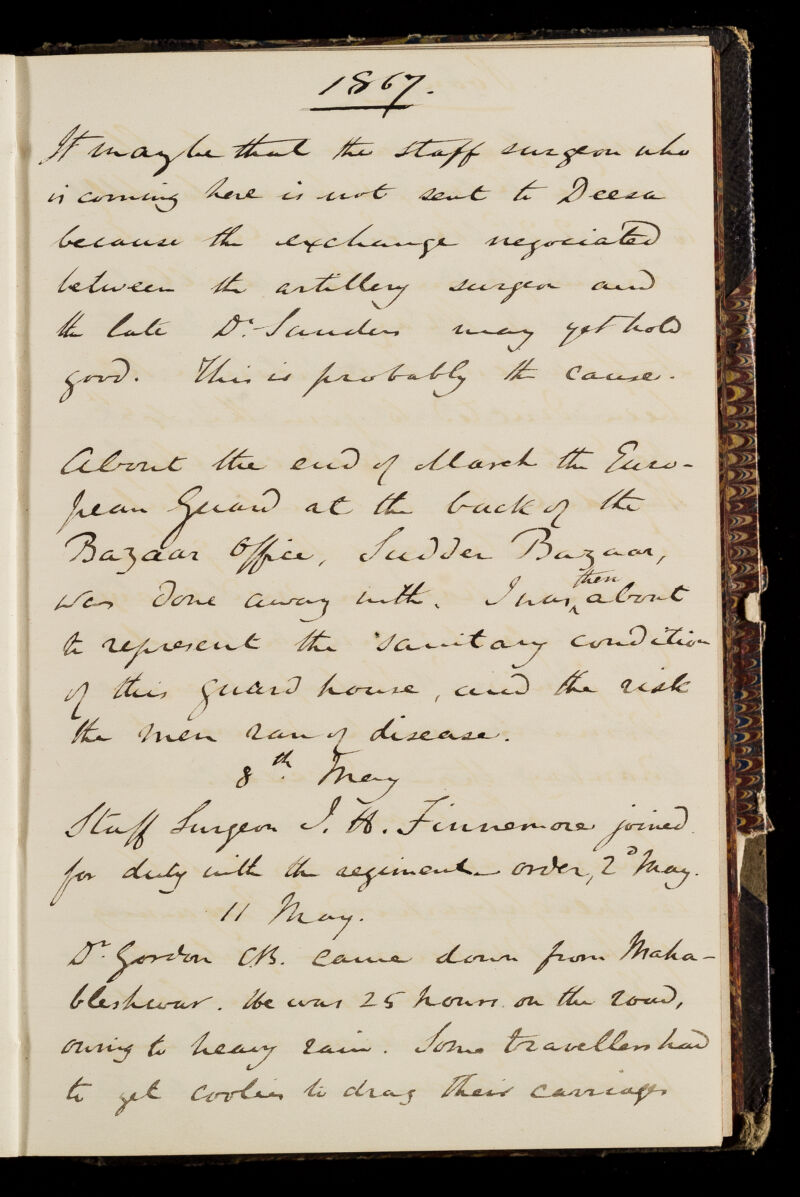 1867.
It may be that the staff surgeon who
is coming here is not sent to Deesa
because the exchange negociated
between the artillery surgeon and
the late Dr. Sanders may yet hold
good. This is probably the cause.
About the end of March the Euro-
pean Guard at the back of the
Bazaar Office, Sudder Bazaar,
was done away with. I was then about
to represent the sanitary condition
of this guard house, and the risk
the men ran of disease.
8th. May
Staff Surgeon J. H. Finnemore joined
for duty with the regiment – order, 2d May.
11 May.
Dr. Gordon CB. came down from Maha-
bleshwar. He was 25 hours on the road,
owing to heavy rain. Some travellers had
to get coolies to drag their carriages